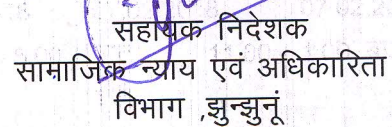 सहायक निदेशक
सामाजिक न्याय एवं अधिकारिता
विभाग ,झुन्झुनूं